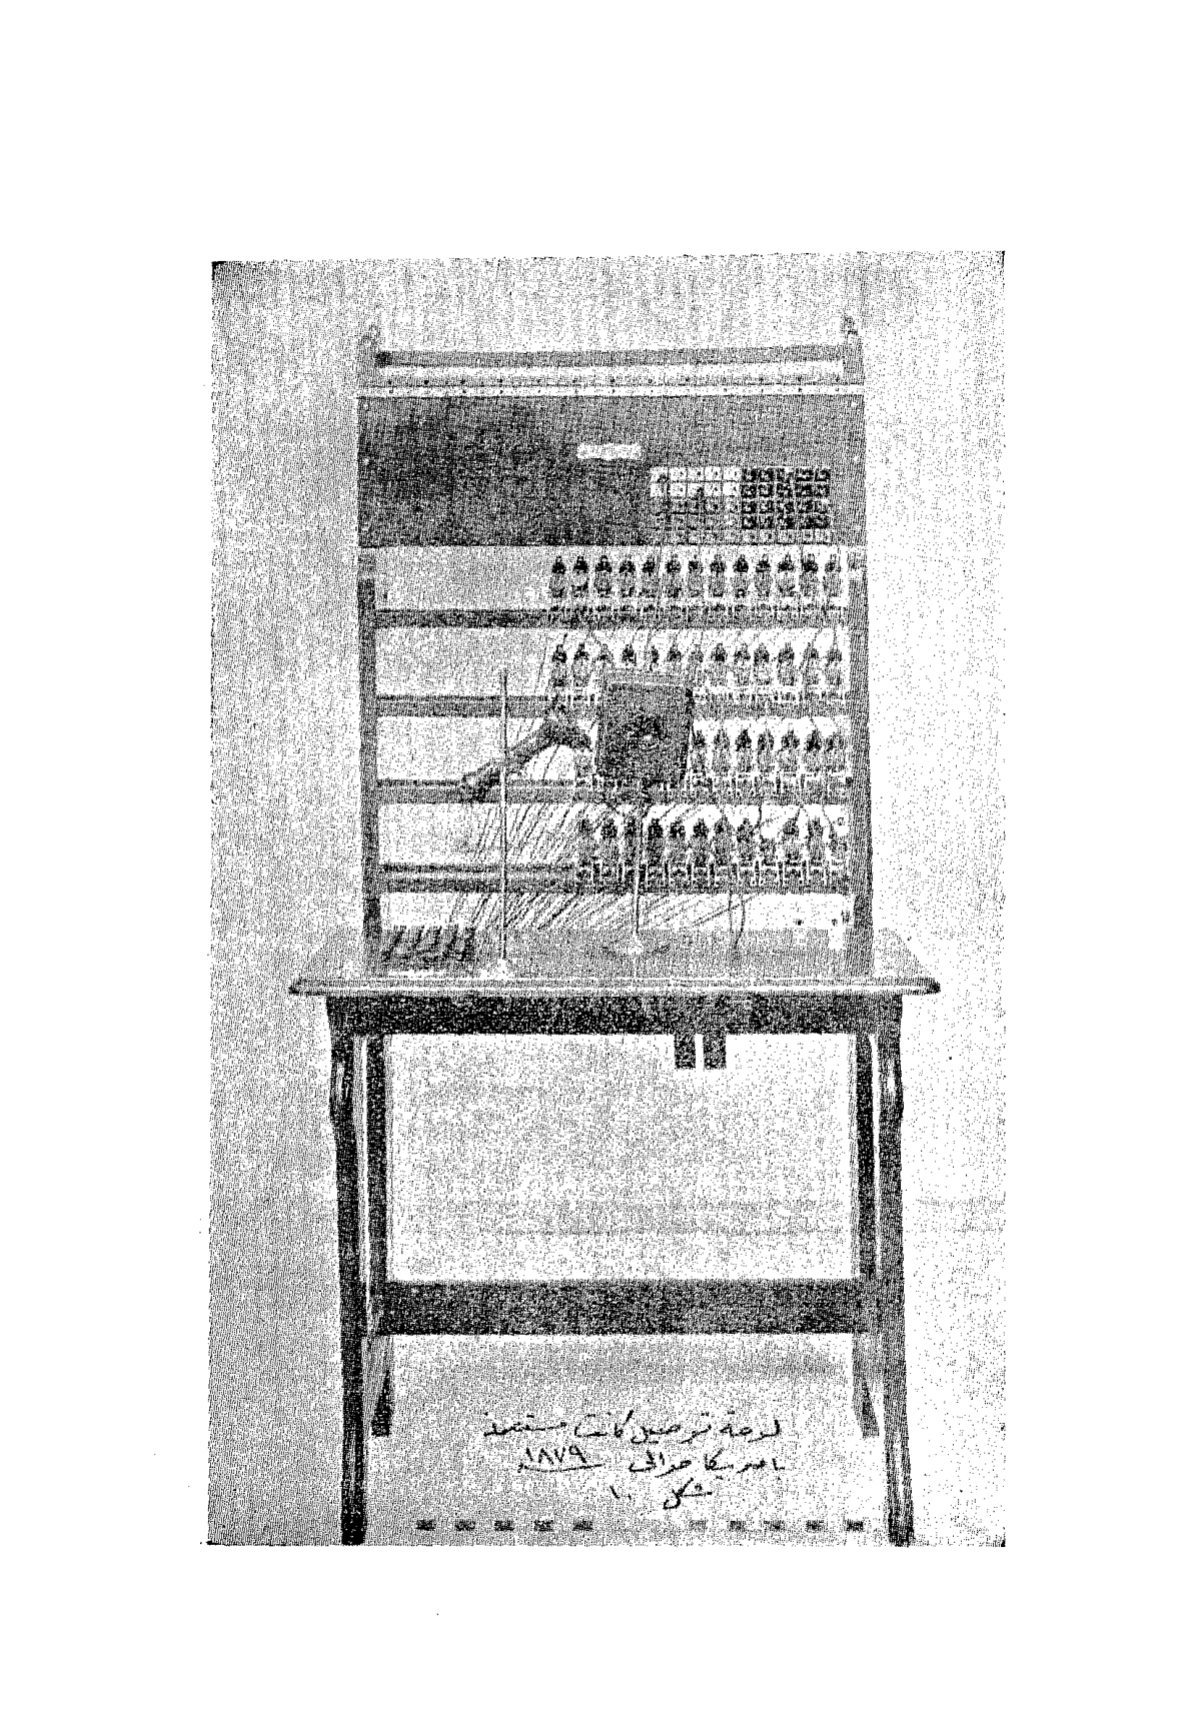 لوحة توصيل كانت مستعملة
بامريكا حوالى سنة ١٨٧٩
شكل ١٠